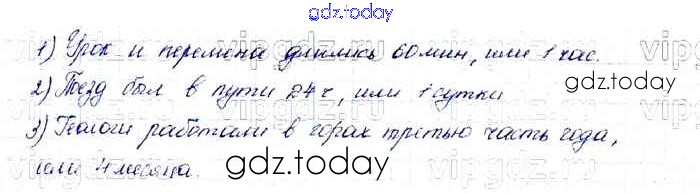 gdz.today
1) Урок и перемена длились 60 мин, или 1 час.
gdz.today
2) Поезд был в пути 24 ч, или 1 сутки
3) Геологи работали в горах третью часть года,
или 4 месяца.
gdz.today